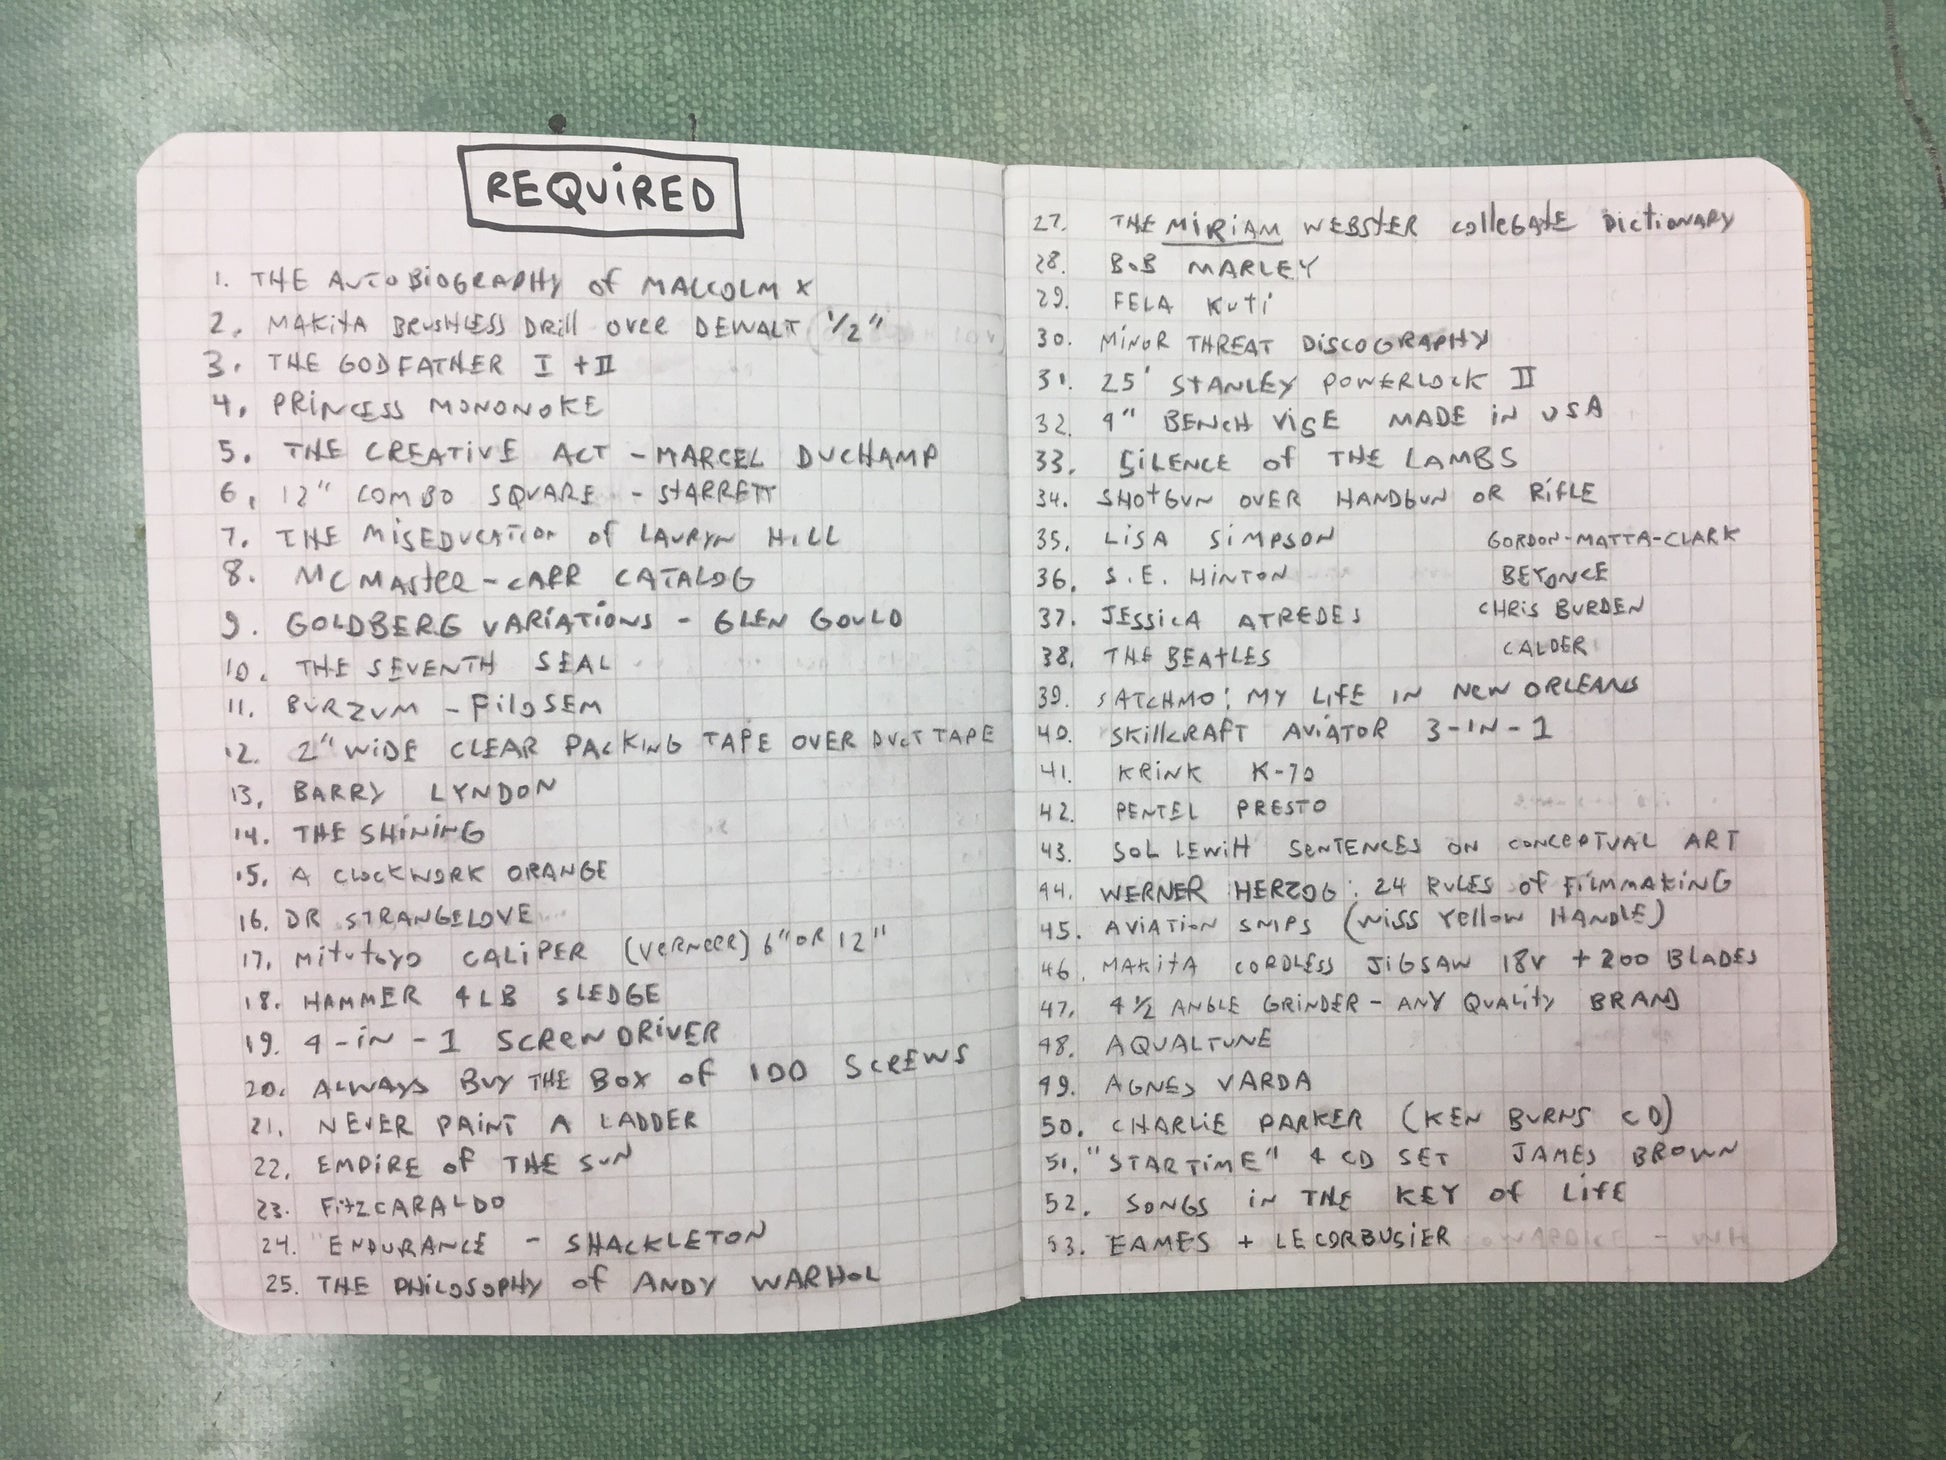 REQUIRED
1. THE AUTOBIOGRAPHY of MALCOLM X
2. MAKITA BRUSHLESS DRILL OVER DEWALT 1/2"
3. THE GODFATHER I + II
4. PRINCESS MONONOKE
5. THE CREATIVE ACT - MARCEL DUCHAMP
6. 12" COMBO SQUARE - STARRETT
7. THE MISEDUCATION of LAURYN HILL
8. MCMASTER-CARR CATALOG
9. GOLDBERG VARIATIONS - GLEN GOULD
10. THE SEVENTH SEAL
11. BURZUM - FILOSEM
12. 2" WIDE CLEAR PACKING TAPE OVER DUCT TAPE
13. BARRY LYNDON
14. THE SHINING
15. A CLOCKWORK ORANGE
16. DR STRANGELOVE
17. MITUTOYO CALIPER (VERNEER) 6" OR 12"
18. HAMMER 4LB SLEDGE
19. 4-IN-1 SCREWDRIVER
20. ALWAYS BUY THE BOX of 100 SCREWS
21. NEVER PAINT A LADDER
22. EMPIRE of THE SUN
23. FITZCARALDO
24. ENDURANCE - SHACKLETON
25. THE PHILOSOPHY of ANDY WARHOL
27. THE MIRIAM WEBSTER COLLEGATE DICTIONARY
28. BOB MARLEY
29. FELA KUTI
30. MINOR THREAT DISCOGRAPHY
31. 25' STANLEY POWERLOCK II
32. 4" BENCH VISE MADE IN USA
33. SILENCE of THE LAMBS
34. SHOTGUN OVER HANDGUN OR RIFLE
35. LISA SIMPSON GORDON-MATTA-CLARK
36. S.E. HINTON BEYONCE
37. JESSICA ATREDES CHRIS BURDEN
38. THE BEATLES CALDER
39. SATCHMO: MY LIFE IN NEW ORLEANS
40. SKILLCRAFT AVIATOR 3-IN-1
41. KRINK K-70
42. PENTEL PRESTO
43. SOL LEWITT SENTENCES ON CONCEPTUAL ART
44. WERNER HERZOG: 24 RULES of FILMMAKING
45. AVIATION SNIPS (WISS YELLOW HANDLE)
46. MAKITA CORDLESS JIGSAW 18V + 200 BLADES
47. 4 1/2 ANGLE GRINDER - ANY QUALITY BRAND
48. AQUALTUNE
49. AGNES VARDA
50. CHARLIE PARKER (KEN BURNS CD)
51. "STARTIME" 4 CD SET JAMES BROWN
52. SONGS IN THE KEY of LIFE
53. EAMES + LE CORBUSIER